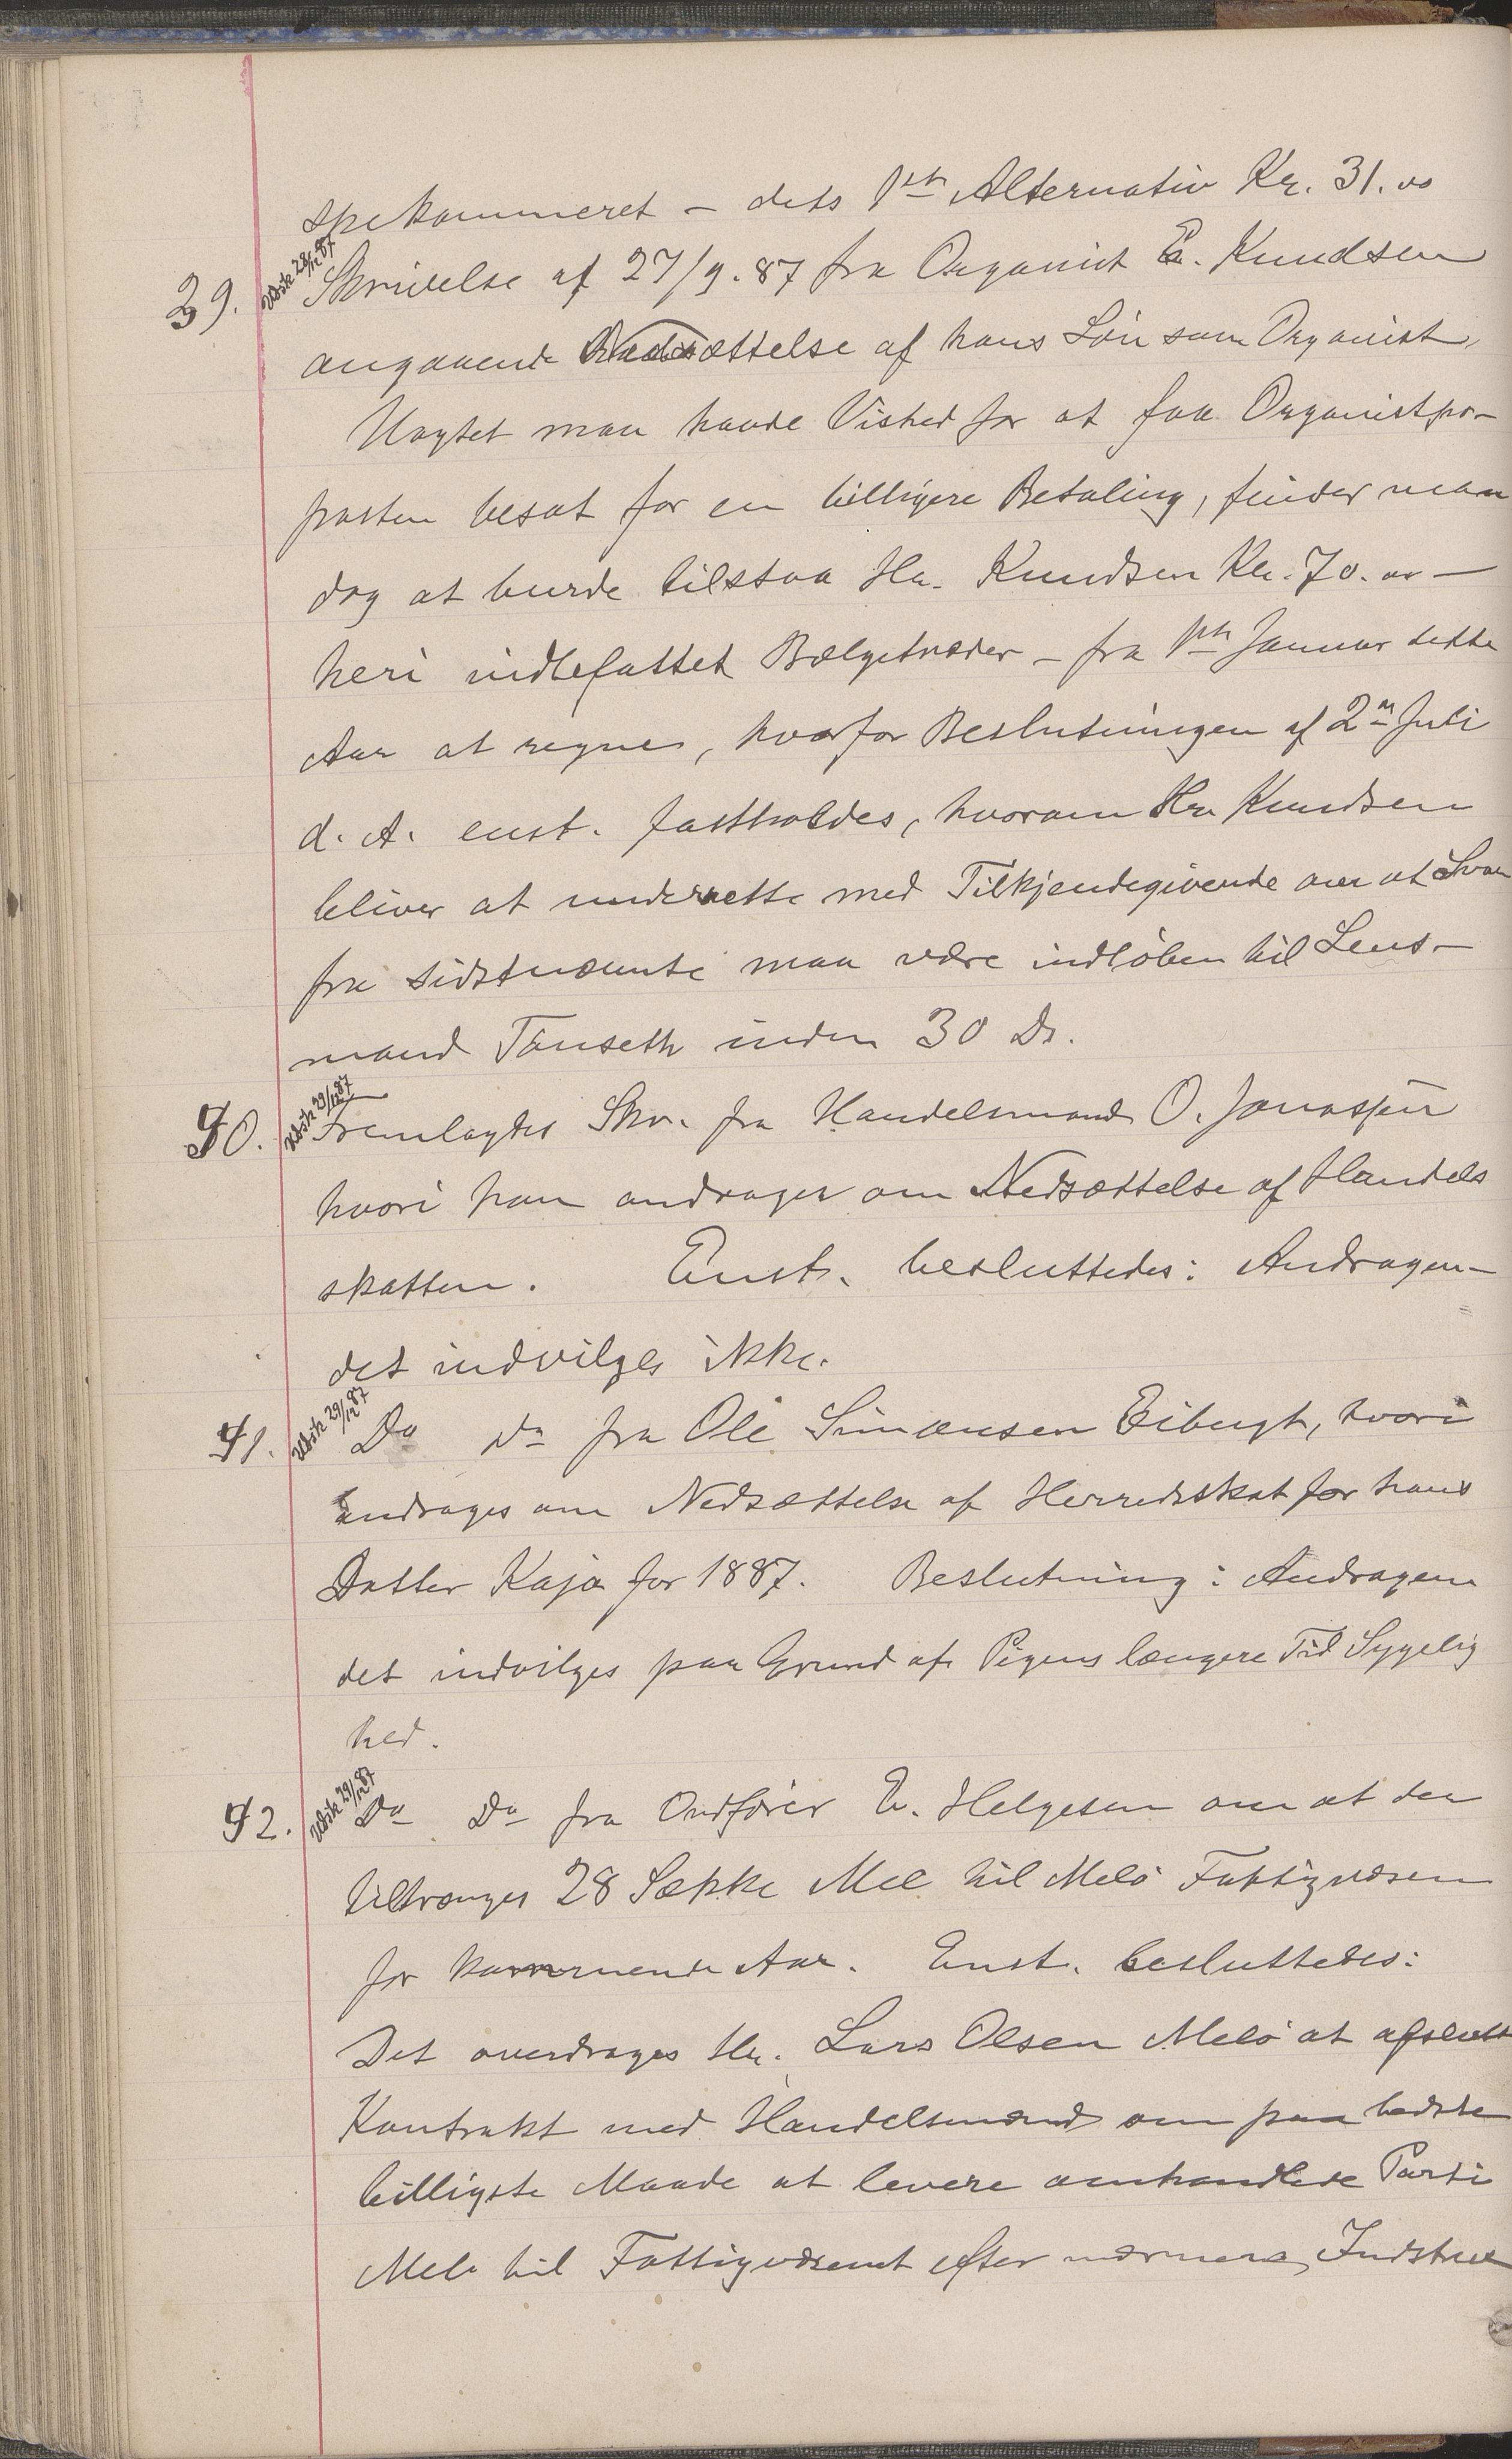 spekammeret – dets 1ste Alternativ Kr. 31.00
39. Udsk 29/12 87 Skrivelse af 27/9. 87 fra Organist E. Knudsen
angaaende Nedsættelse af hans Løn som Organist,
Uagtet man havde Vished for at faa Organistpo-
posten besat for en billigere Betaling, finder man
dog at burde tilstaa Hr. Knudsen Kr. 70.00 –
heri indbefattet Bælgetræder – fra 1ste Januar dette
Aar at regne, hvorfor Beslutningen af 2den Juli
d. A. enst. fastholdes, hvorom Hr. Knudsen
bliver at underrette med Tilkjendegivende om at Svar
fra sidstnævnte maa være indløben til Lens-
mand Tønseth inden 30 Ds.
40. Udsk 29/12 87 Fremlagdes Skr. fra Handelsmand O. Jonassen
hvori han andrager om Nedsættelse af Handels
skatten. Enst. besluttedes: Andragen-
det indvilges ikke.
41. Udsk 29/12 87 Do Do fra Ole Simensen Eibugt, hvori
andrages om Nedsættelse af Herredsskat for hans
Datter Kaja for 1887. Beslutning: Andragen
det indvilges paa Grund af Pigens længere Tid Sygelig
hed.
42. Udsk 29/12 87 Do Do fra Ordfører E. Helgesen om at der
tiltrænges 28 Sække Mel til Melø Fattigvæsen
for kommende Aar. Enst. besluttedes:
Det overdrages Hr. Lars Olsen Melø at afslutte
Kontrakt med Handelsmænd om paa bedste
billigste Maade at levere omhandlede Parti
Mel til Fattigvæsenet efter nærmere Instrux